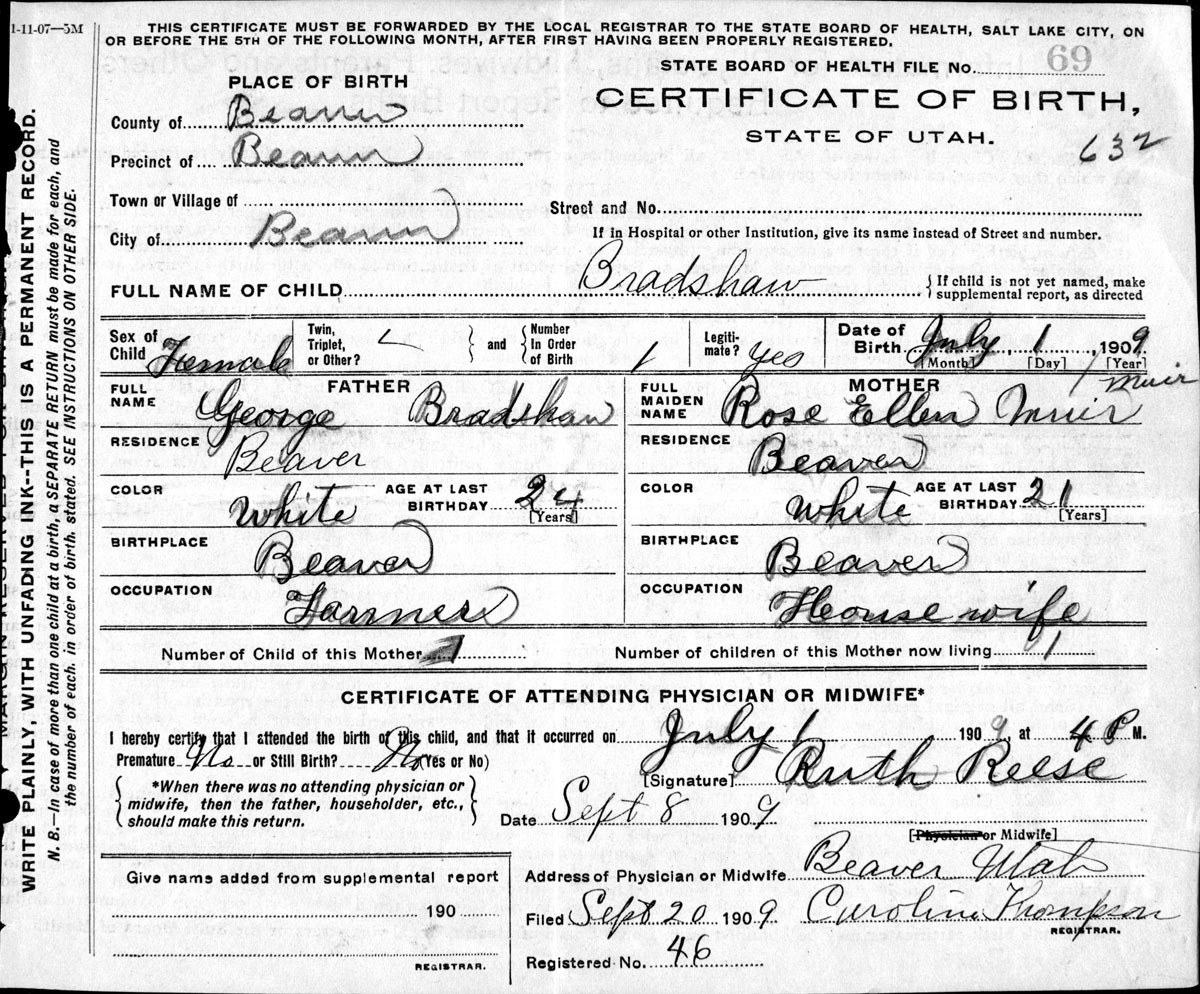 1-11-07—5M
THIS CERTIFICATE MUST BE FORWARDED BY THE LOCAL REGISTRAR TO THE STATE BOARD OF HEALTH, SALT LAKE CITY, ON
OR BEFORE THE 5TH OF THE FOLLOWING MONTH, AFTER FIRST HAVING BEEN PROPERLY REGISTERED.
STATE BOARD OF HEALTH FILE No. 69
PLACE OF BIRTH
CERTIFICATE OF BIRTH,
STATE OF UTAH.
632
County of Beaver
Precinct of Beaver
Town or Village of
Street and No.
City of Beaver
If in Hospital or other Institution, give its name instead of Street and number.
FULL NAME OF CHILD Bradshaw
If child is not yet named, make
supplemental report, as directed
Sex of Child Female
Twin, Triplet, or Other?
and
Number In Order of Birth 1
Legiti- mate? Yes
Date of Birth July 1 1909
[Month] [Day] [Year]
Muir
FATHER
FULL NAME George Bradshaw
MOTHER
FULL MAIDEN NAME Rose Ellen Muir
RESIDENCE Beaver
RESIDENCE Beaver
COLOR White
AGE AT LAST BIRTHDAY 24
[Years]
COLOR White
AGE AT LAST BIRTHDAY 21
[Years]
BIRTHPLACE Beaver
BIRTHPLACE Beaver
OCCUPATION Farmer
OCCUPATION House wife
Number of Child of this Mother 1
Number of children of this Mother now living 1
CERTIFICATE OF ATTENDING PHYSICIAN OR MIDWIFE*
I hereby certify that I attended the birth of this child, and that it occurred on July 1 1909, at 4 P M.
Premature No or Still Birth? No (Yes or No)
[Signature] Ruth Reese
*When there was no attending physician or
midwife, then the father, householder, etc.,
should make this return.
Date Sept 8 1909
[Physician or Midwife]
Give name added from supplemental report
190
REGISTRAR.
Address of Physician or Midwife Beaver Utah
Filed Sept 20 1909 Caroline Thompson
REGISTRAR.
Registered No. 46
WRITE PLAINLY, WITH UNFADING INK--THIS IS A PERMANENT RECORD.
N. B.—In case of more than one child at a birth, a SEPARATE RETURN must be made for each, and
the number of each, in order of birth, stated. SEE INSTRUCTIONS ON OTHER SIDE.